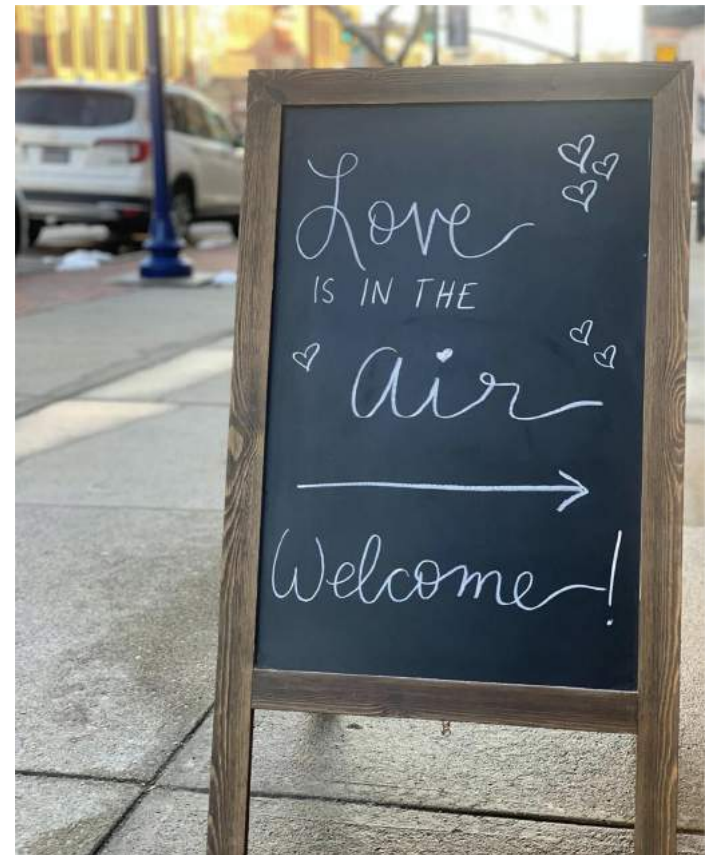 Love
IS IN THE
air
Welcome!